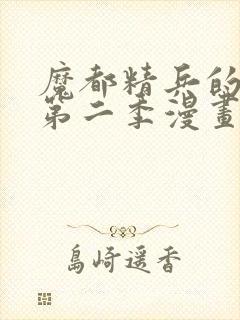 魔都精兵的
第二季漫畫
島崎遥香